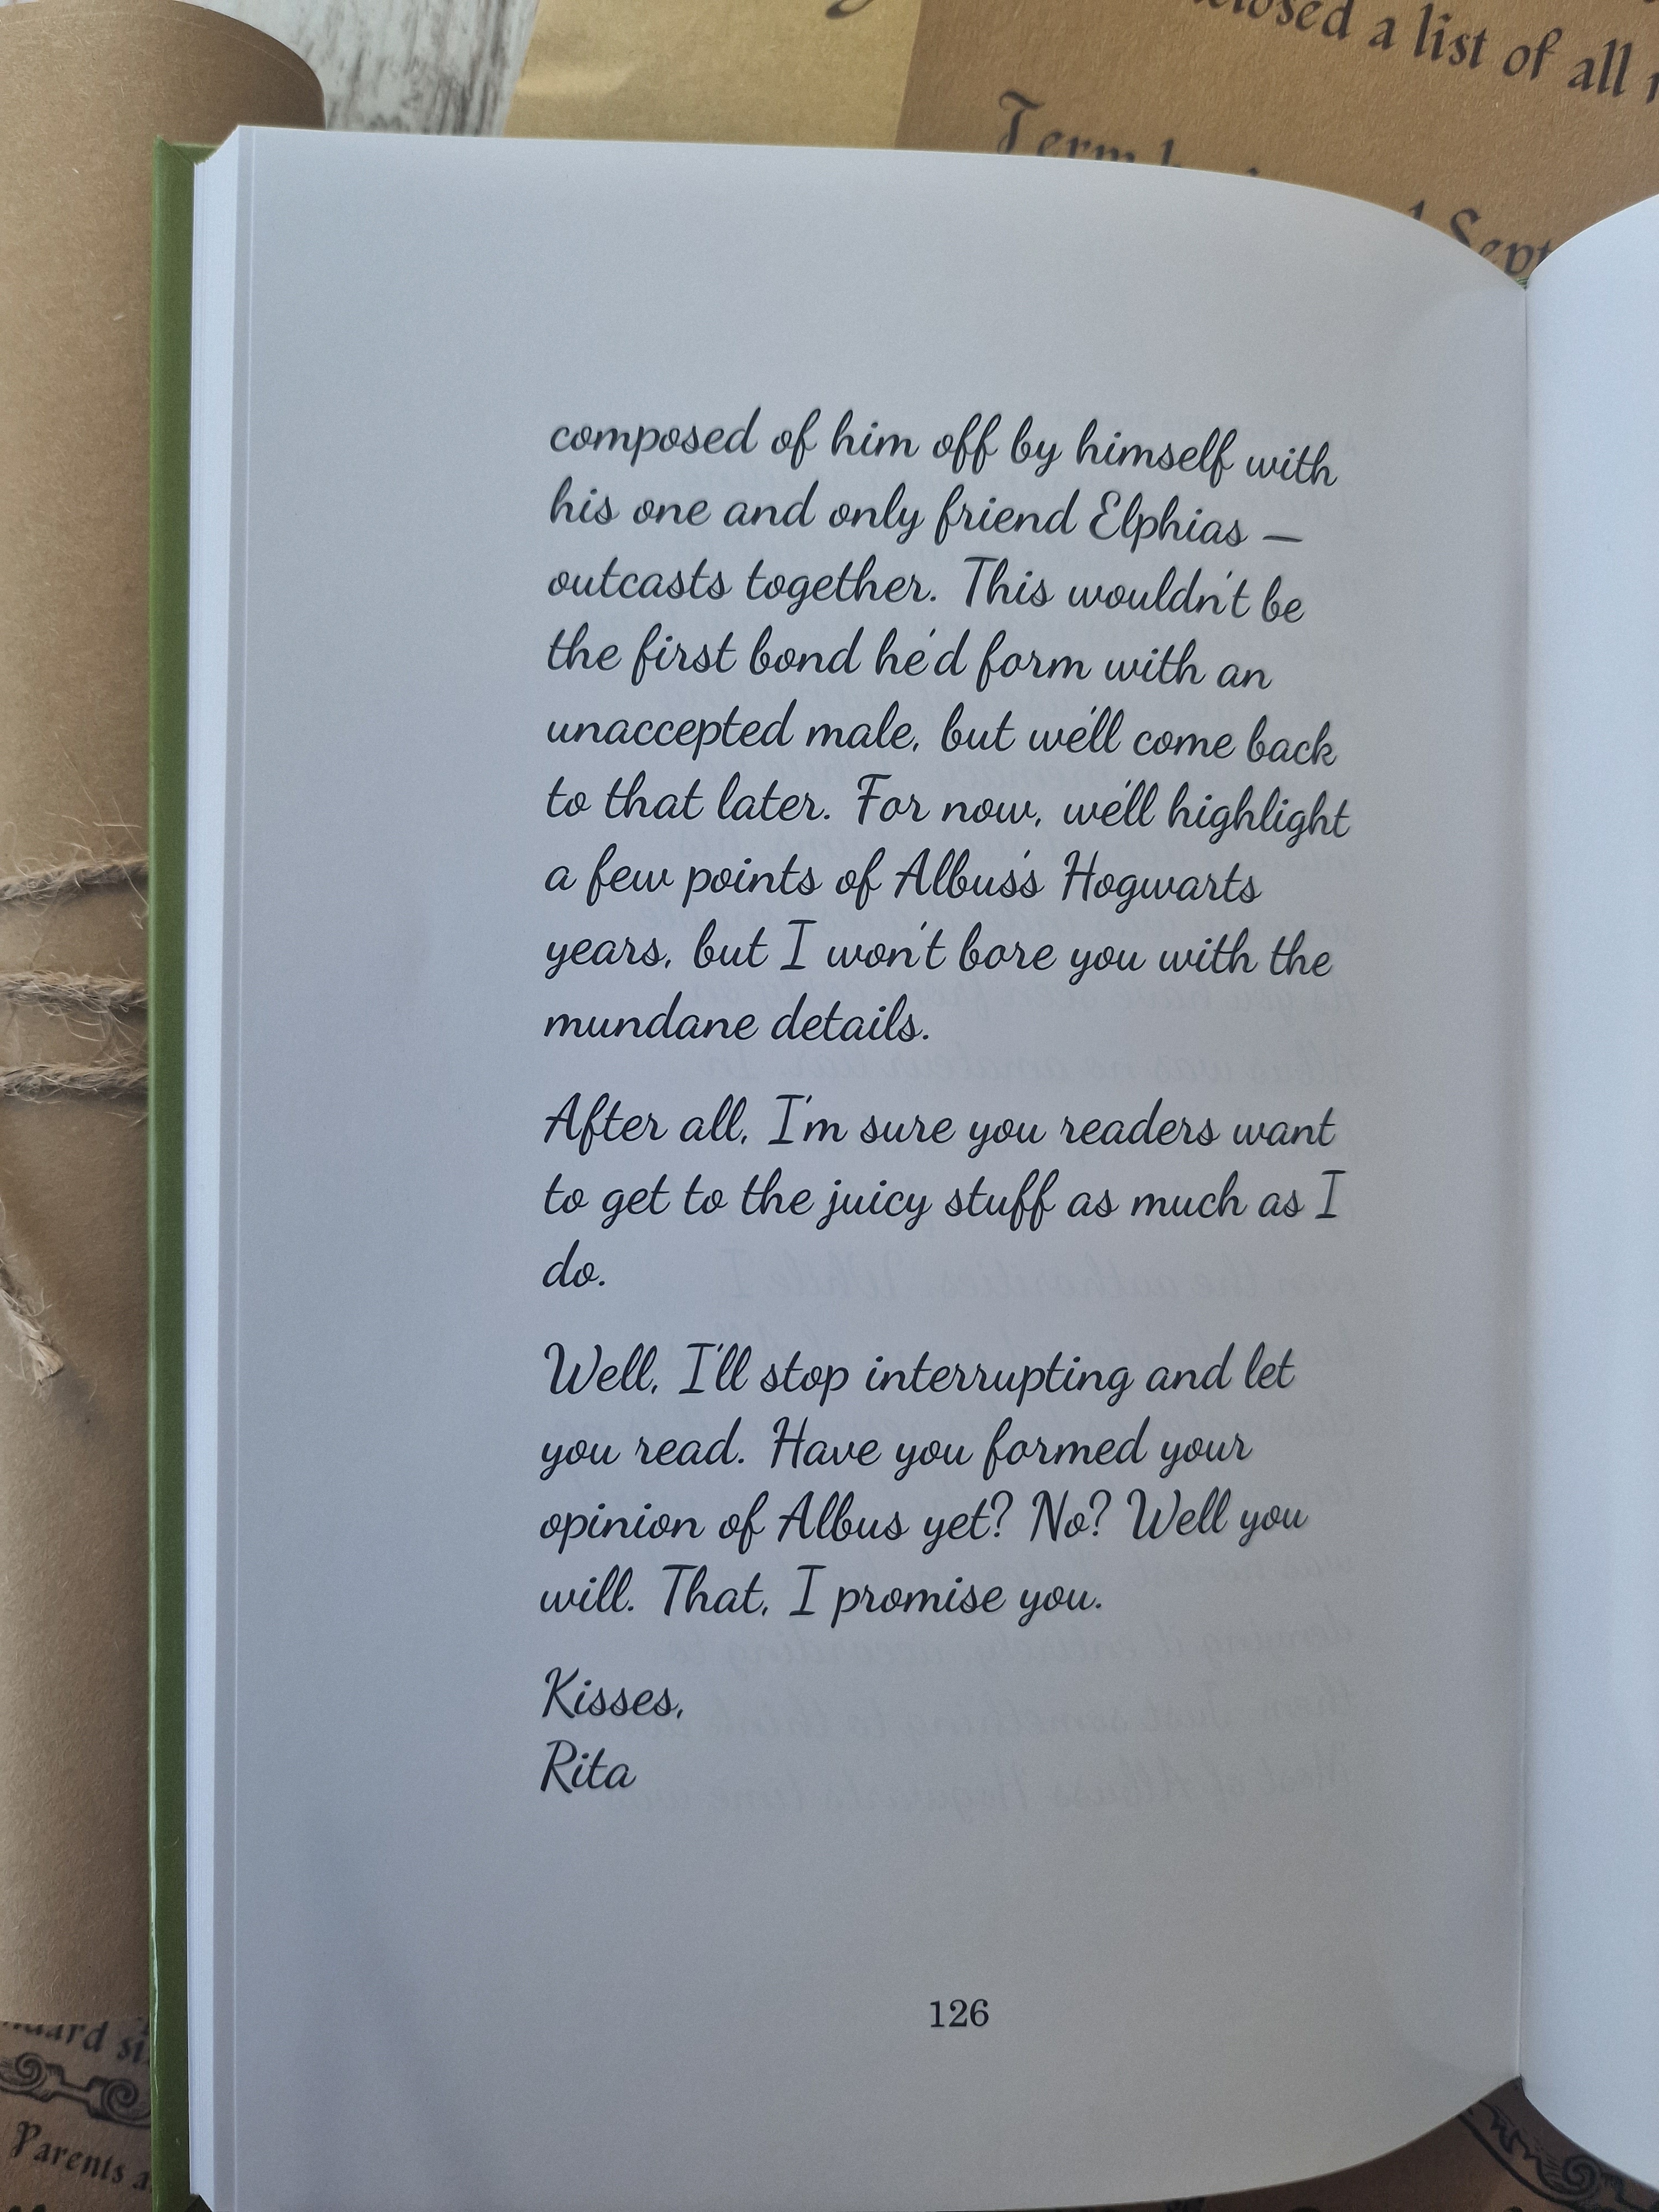 closed a list of all
Term
Sept
composed of him off by himself with
his one and only friend Elphias —
outcasts together. This wouldn't be
the first bond he'd form with an
unaccepted male, but we'll come back
to that later. For now, we'll highlight
a few points of Albus's Hogwarts
years, but I won't bore you with the
mundane details.
After all, I'm sure you readers want
to get to the juicy stuff as much as I
do.
Well, I'll stop interrupting and let
you read. Have you formed your
opinion of Albus yet? No? Well you
will. That, I promise you.
Kisses,
Rita
126
Parents a